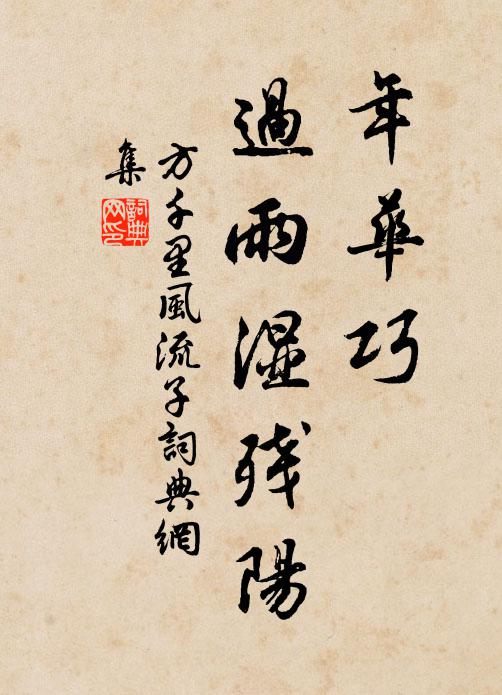 年華巧
過雨湿残陽
方千里風流子詞典網
集
詞典網印